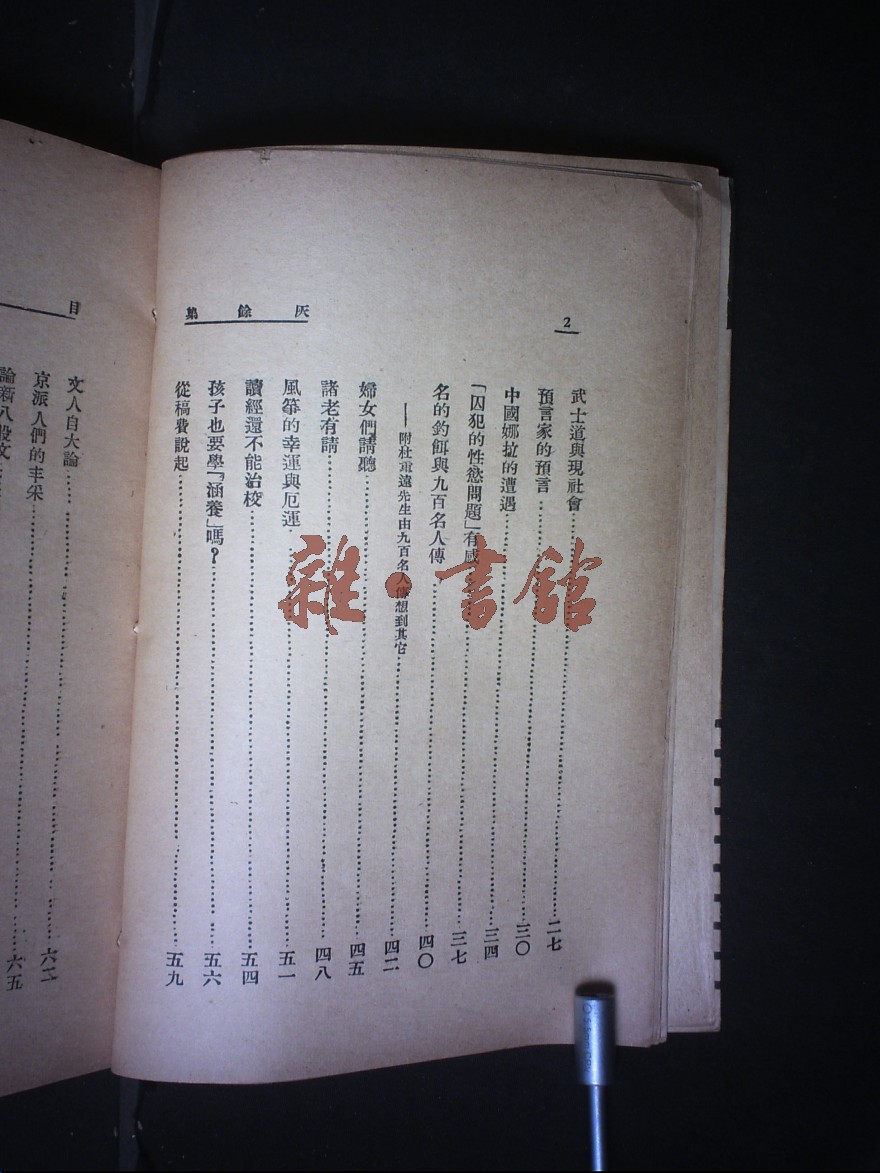 2
灰餘集
武士道與現社會……二七
預言家的預言……三〇
中國娜拉的遭遇……三四
「囚犯的性慾問題」有感……三七
名的釣餌與九百名人傳……四〇
——附杜重遠先生由九百名人傳想到其它……四二
婦女們請聽……四五
諸老有請……四八
風箏的幸運與厄運……五一
讀經還不能治校……五四
孩子也要學「涵養」嗎?……五六
從稿費說起……五九
目
文人自大論……
京派人們的丰采……六二
論新八股文……六五
雜·書館